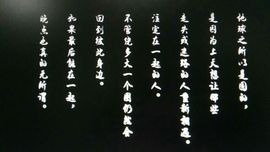 地球之所以是圆的,
是因为上天想让那些
走失或迷路的人重新相遇。
注定在一起的人,
不管绕多大一个圈仍然会
回到彼此身边。
如果最后能在一起,
晚点也真的无所谓。